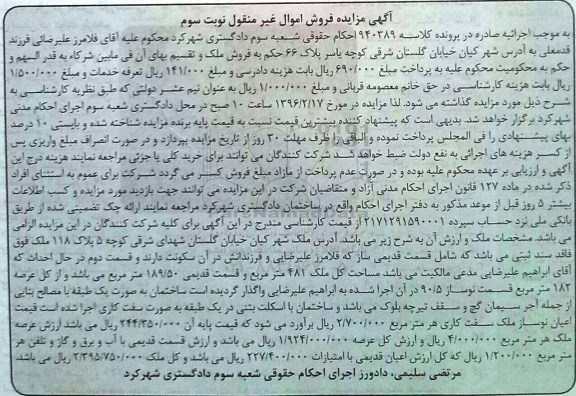 آگهی مزایده فروش اموال غیر منقول نوبت سوم
به موجب اجرائیه صادره در پرونده کلاسه ۹۴۰۳۸۹ احکام حقوقی شعبه سوم دادگستری شهرکرد محکوم علیه آقای فلامرز علیرضائی فرزند
قدمعلی به آدرس شهر کیان خیابان گلستان شرقی کوچه یاسر پلاک ۶۶ حکم به فروش ملک و تقسیم بهای آن فی مابین شرکاء به قدر السهم و
حکم به محکومیت محکوم علیه به پرداخت مبلغ ۶۹۰/۰۰۰ ریال بابت هزینه دادرسی و مبلغ ۱۴۱/۰۰۰ ریال تعرفه خدمات و مبلغ ۱/۵۰۰/۰۰۰
ریال بابت هزینه کارشناسی در حق خانم معصومه قربانی و مبلغ ۱/۰۰۰/۰۰۰ ریال به عنوان نیم عشر دولتی که طبق نظریه کارشناسی به
شرح ذیل مورد مزایده گذاشته می شود. لذا مزایده در مورخ ۱۳۹۶/۲/۱۷ ساعت ۱۰ صبح در محل دادگستری شعبه سوم اجرای احکام مدنی
شهرکرد برگزار خواهد شد. بدیهی است که پیشنهاد کننده بیشترین قیمت نسبت به قیمت پایه برنده مزایده شناخته شده و بایستی ۱۰ درصد
بهای پیشنهادی را فی المجلس پرداخت نموده و الباقی را ظرف مهلت ۳۰ روز از تاریخ مزایده بپردازد و در صورت انصراف مبلغ واریزی پس
از کسر هزینه های اجرائی به نفع دولت ضبط خواهد شد. شرکت کنندگان می توانند برای خرید کلی یا جزئی مراجعه نمایند هزینه درج این
آگهی و ارزیابی بر عهده محکوم علیه بوده و در صورت عدم پرداخت از مازاد مبلغ فروش کسر می گردد شرکت برای عموم به استثنای افراد
ذکر شده در ماده ۱۲۷ قانون اجرای احکام مدنی آزاد و متقاضیان شرکت در این مزایده می توانند جهت بازدید مورد مزایده و کسب اطلاعات
بیشتر ۵ روز قبل از موعد مذکور به دفتر اجرای احکام واقع در ساختمان دادگستری شهرکرد مراجعه نمایند ارائه چک تضمینی شده از طریق
بانکی ملی نزد حساب سپرده ۲۱۷۱۲۹۱۵۹۰۰۰۱ از قیمت کارشناسی مندرج در این آگهی برای کلیه شرکت کنندگان در این مزایده الزامی
می باشد. مشخصات ملک و ارزش آن به شرح زیر می باشد. آدرس ملک شهر کیان خیابان گلستان شهدای شرقی کوچه ۵ پلاک ۱۱۸ ملک فوق
فاقد سند ثبتی می باشد که شامل قسمت قدیمی ساز که فلامرز علیرضایی و فرزندانش در آن سکونت دارند و قسمت دوم در حال احداث که
آقای ابراهیم علیرضایی مدعی مالکیت می باشد مساحت کل ملک ۴۸۱ متر مربع و قسمت قدیمی ۱۸۹/۵۰ متر مربع می باشد و از کل عرصه
۱۸۲ متر مربع قسمت نوساز ۹۰/۵ در آن اجرا شده به ابراهیم علیرضایی واگذار گردیده است ساختمان به صورت یک طبقه با مصالح بنایی
از جمله آجر سیمان گچ و سقف تیرچه بلوک می باشد و ساختمان با اسکلت بتنی در یک طبقه به صورت سفت کاری اجرا شده است قیمت
اعیان نوساز ملک سفت کاری هر متر مربع ۲/۷۰۰/۰۰۰ ریال برآورد می شود که قیمت پایه آن ۲۴۴/۳۵۰/۰۰۰ ریال می باشد ارزش عرصه
ملک هر متر مربع ۴/۰۰۰/۰۰۰ ریال و ارزش کل عرصه ۱/۹۲۴/۰۰۰/۰۰۰ ریال می باشد و ارزش قسمت قدیمی با آب و برق و گاز و تلفن هر
متر مربع ۱/۲۰۰/۰۰۰ ریال که کل ارزش اعیان قدیمی با امتیازات ۲۲۷/۴۰۰/۰۰۰ ریال می باشد و کل ملک ۲/۳۹۵/۷۵۰/۰۰۰ ریال می باشد.
مرتضی سلیمی، دادورز اجرای احکام حقوقی شعبه سوم دادگستری شهرکرد